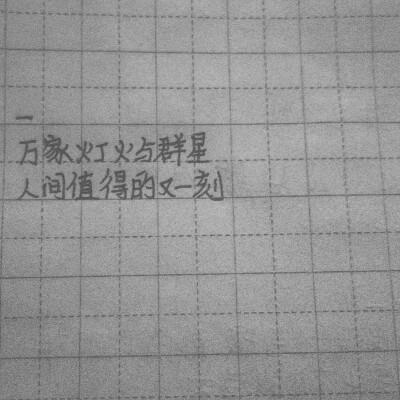 一
万家灯火与群星
人间值得的又一刻